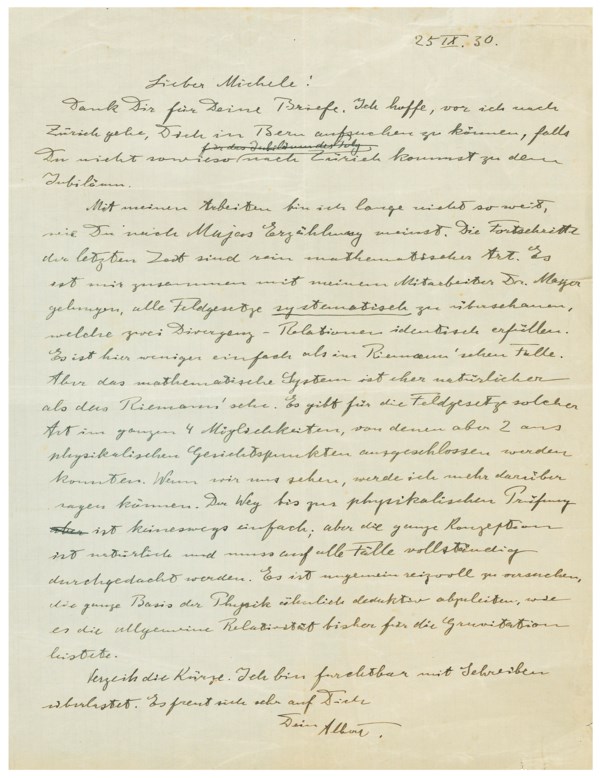 25 IX. 30.
Lieber Michele!
Dank Dir für Deine Briefe. Ich hoffe, vor ich nach
Zürich gehe, Dich in Bern aufsuchen zu können, falls
für das Jubiläum des Poly
Du nicht sowieso nach Zürich kommst zu dem
Jubiläum.
Mit meinen Arbeiten bin ich lange nicht so weit,
wie Du nach Majas Erzählung meinst. Die Fortschritte
der letzten Zeit sind rein mathematischer Art. Es
ist mir zusammen mit meinem Mitarbeiter Dr. Mayer
gelungen, alle Feldgesetze systematisch zu überschauen,
welche zwei Divergenz-Relationen identisch erfüllen.
Es ist hier weniger einfach als im Riemann'schen Falle.
Aber das mathematische System ist eher natürlicher
als das Riemann'sche. Es gibt für die Feldgesetze solcher
Art im ganzen 4 Möglichkeiten, von denen aber 2 aus
physikalischen Gesichtspunkten ausgeschlossen werden
konnten. Wenn wir uns sehen, werde ich mehr darüber
sagen können. Der Weg bis zur physikalischen Prüfung
aber ist keineswegs einfach; aber die ganze Konzeption
ist natürlich und muss auf alle Fälle vollständig
durchgedacht werden. Es ist ungemein reizvoll zu versuchen,
die ganze Basis der Physik ähnlich deduktiv abzuleiten, wie
es die allgemeine Relativität bisher für die Gravitation
leistete.
Verzeih die Kürze. Ich bin furchtbar mit Schreiben
überlastet. Es freut sich sehr auf Dich
Dein Albert.